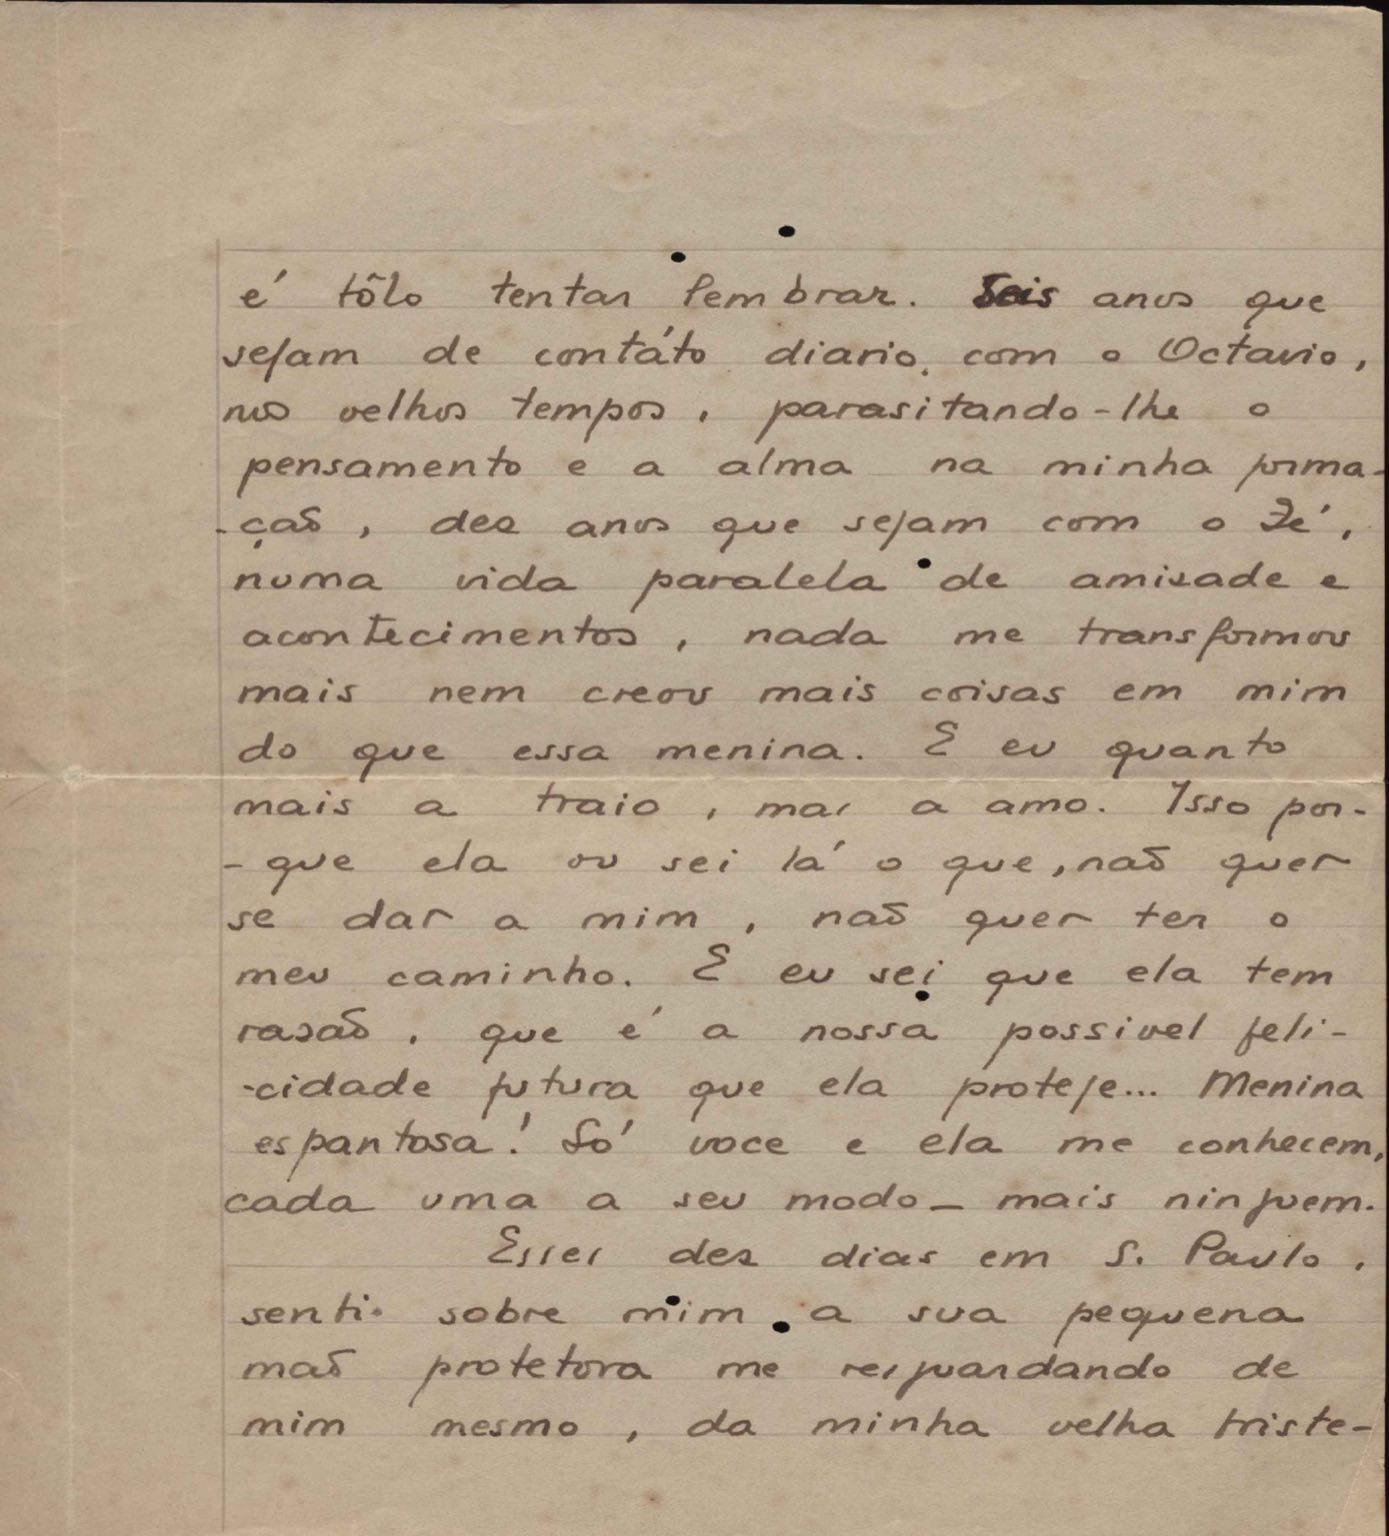 é tôlo tentar lembrar. Seis anos que
sejam de contáto diario, com o Octavio,
nos velhos tempos, parasitando-lhe o
pensamento e a alma na minha forma-
-çaõ, dez anos que sejam com o Zé,
numa vida paralela de amizade e
acontecimentos, nada me transformou
mais nem creou mais coisas em mim
do que essa menina. E eu quanto
mais a traio, mais a amo. Isso por-
-que ela ou sei lá o que, naõ quer
se dar a mim, naõ quer ter o
meu caminho. E eu sei que ela tem
razaõ, que é a nossa possivel feli-
-cidade futura que ela proteje... Menina
espantosa! Só voce e ela me conhecem,
cada uma a seu modo - mais ninguem.
Esses dez dias em S. Paulo,
senti sobre mim a sua pequena
maõ protetora me resguardando de
mim mesmo, da minha velha triste-